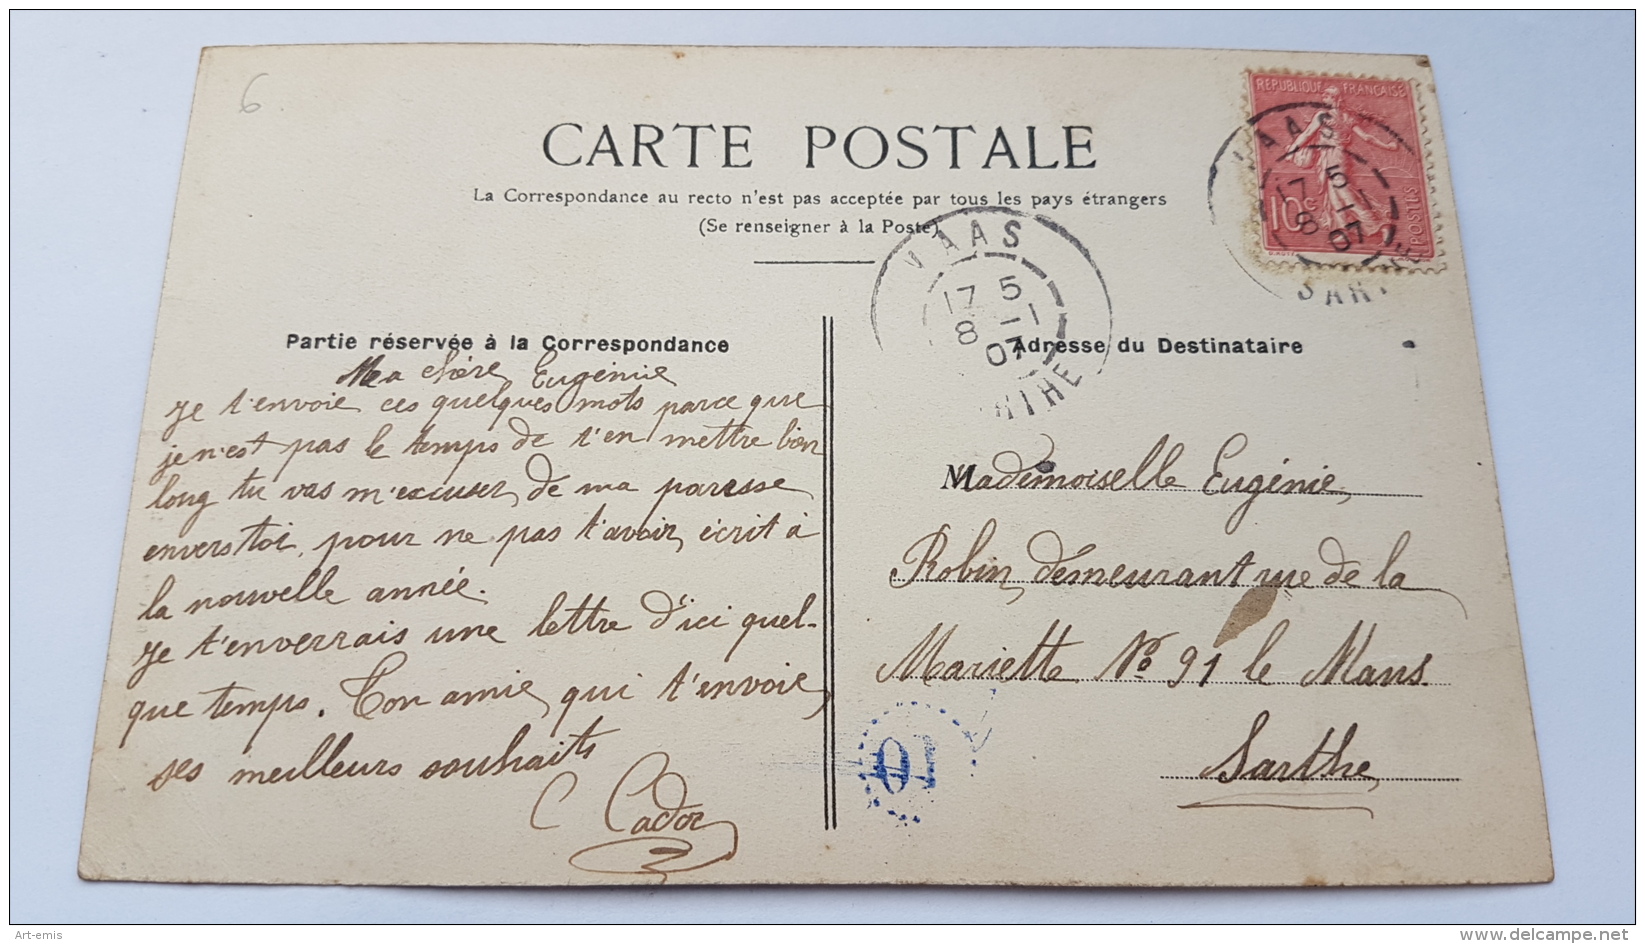 6
CARTE POSTALE
La Correspondance au recto n'est pas acceptée par tous les pays étrangers
(Se renseigner à la Poste)
REPUBLIQUE FRANÇAISE
10c
POSTES
VAAS
17 5
8 -1
07
SARTHE
VAAS
17 5
8 -1
07
RTHE
Partie réservée à la Correspondance
Ma chère Eugénie
Je t'envoie ces quelques mots parce que
je n'est pas le temps de t'en mettre bien
long tu vas m'excuser de ma paresse
envers toi, pour ne pas t'avoir écrit à
la nouvelle année.
Je t'enverrais une lettre d'ici quel-
que temps. Ton amie qui t'envoie
ses meilleurs souhaits
C Cador
Adresse du Destinataire
Mademoiselle Eugénie
Robin demeurant rue de la
Mariette No 91 le Mans
Sarthe
01
Art-emis
delcampe.net